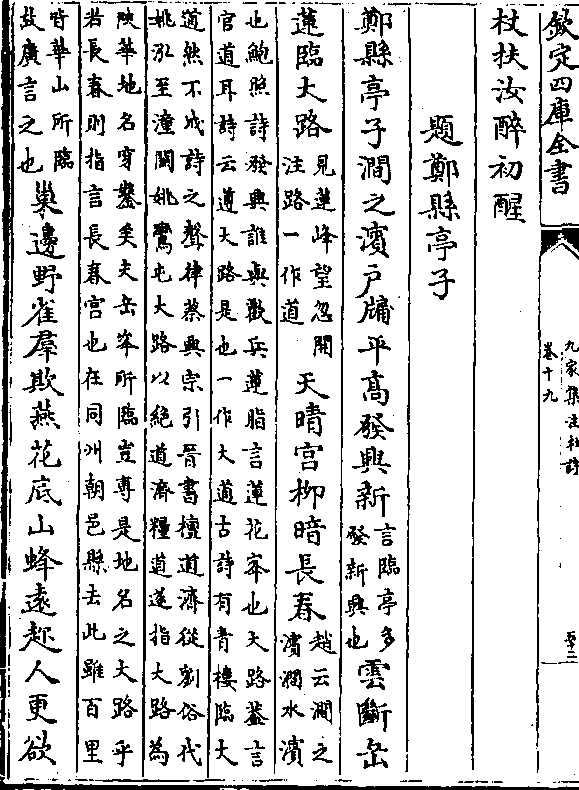 欽定四庫全書
九家集注杜詩
卷十九
杖扶汝醉初醒
題鄭縣亭子
鄭縣亭子澗之濱戶牖平高發興新言臨亭多發新興也雲斷岳
蓮臨大路見蓮峰望忽開注路一作道天晴宮柳暗長春趙云澗之濱澗水濱
也鮑照詩發興誰與歡兵蓮脂言蓮花峯也大路葢言
官道耳詩云遵大路是也一作大道古詩有青樓臨大
道然不成詩之聲律蔡興宗引晉書檀道濟從劉俗代
姚泓至潼關姚鸞屯大路以絕道濟糧道遂指大路為
陜華地名穿鑿矣夫岳峯所臨豈專是地名之大路乎
若長春則指言長春宮也在同州朝邑縣去此雖百里
時華山所臨故廣言之也巢邊野雀羣欺燕花底山蜂遠趂人更欲